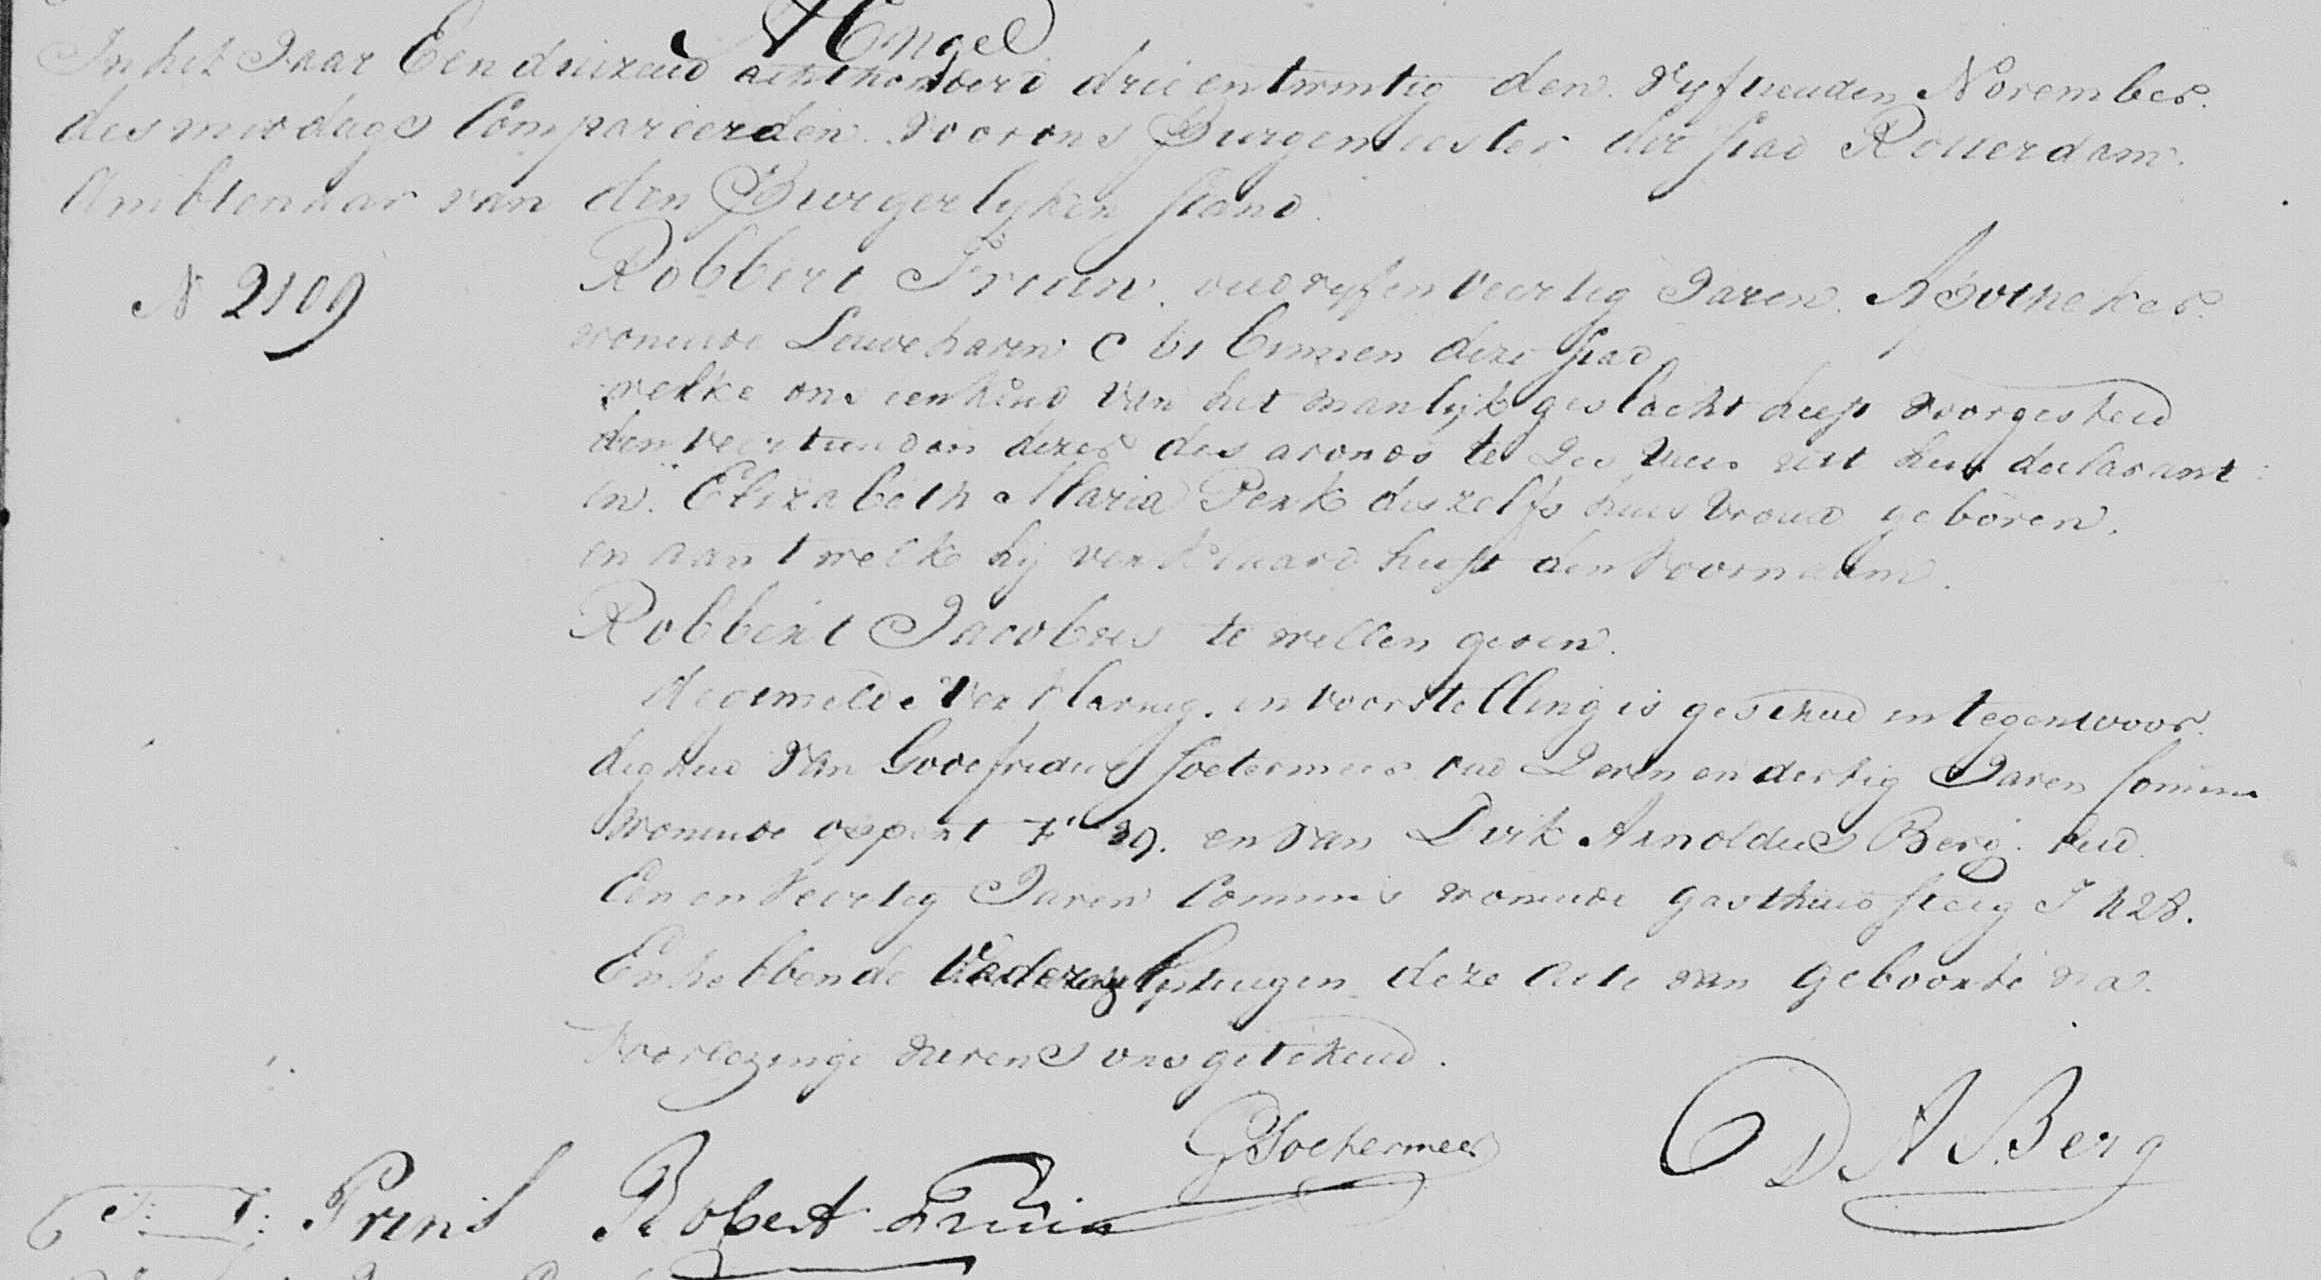 A Engel
In het Jaar Een duizend achthonderd drieentwintig den vyftienden November
des middags Compareerden voor ons Burgemeester der stad Rotterdam
Ambtenaar van den Burgerlyken stand
N 2109
Robbert Fruin oud vyfenveertig Jaren Apotheker
wonende Leuvehaven C 61 binnen deze stad
welke ons een kind van het manlyk geslacht heeft voorgesteld
den veertienden dezer des avonds te zes uur uit hem declarant
en Elizabeth Maria Penk deszelfs huisvrouw geboren
en aan 't welk hij verklaard heeft den voornaam
Robbert Jacobus te willen geven
de gemelde verklaring en voorstelling is geschied in tegenwoor
digheid van Godefridus Soetermeer oud zeven en dertig Jaren
wonende 39. en van Dirk Arnoldus Berg oud
Een en veertig Jaren Commis wonende Gasthuis steeg I 428.
En hebbende Vader en getuigen deze Acte van geboorte na
voorlezinge nevens ons getekend.
G Soetermeer
D A Berg
Prins Robert Fruin